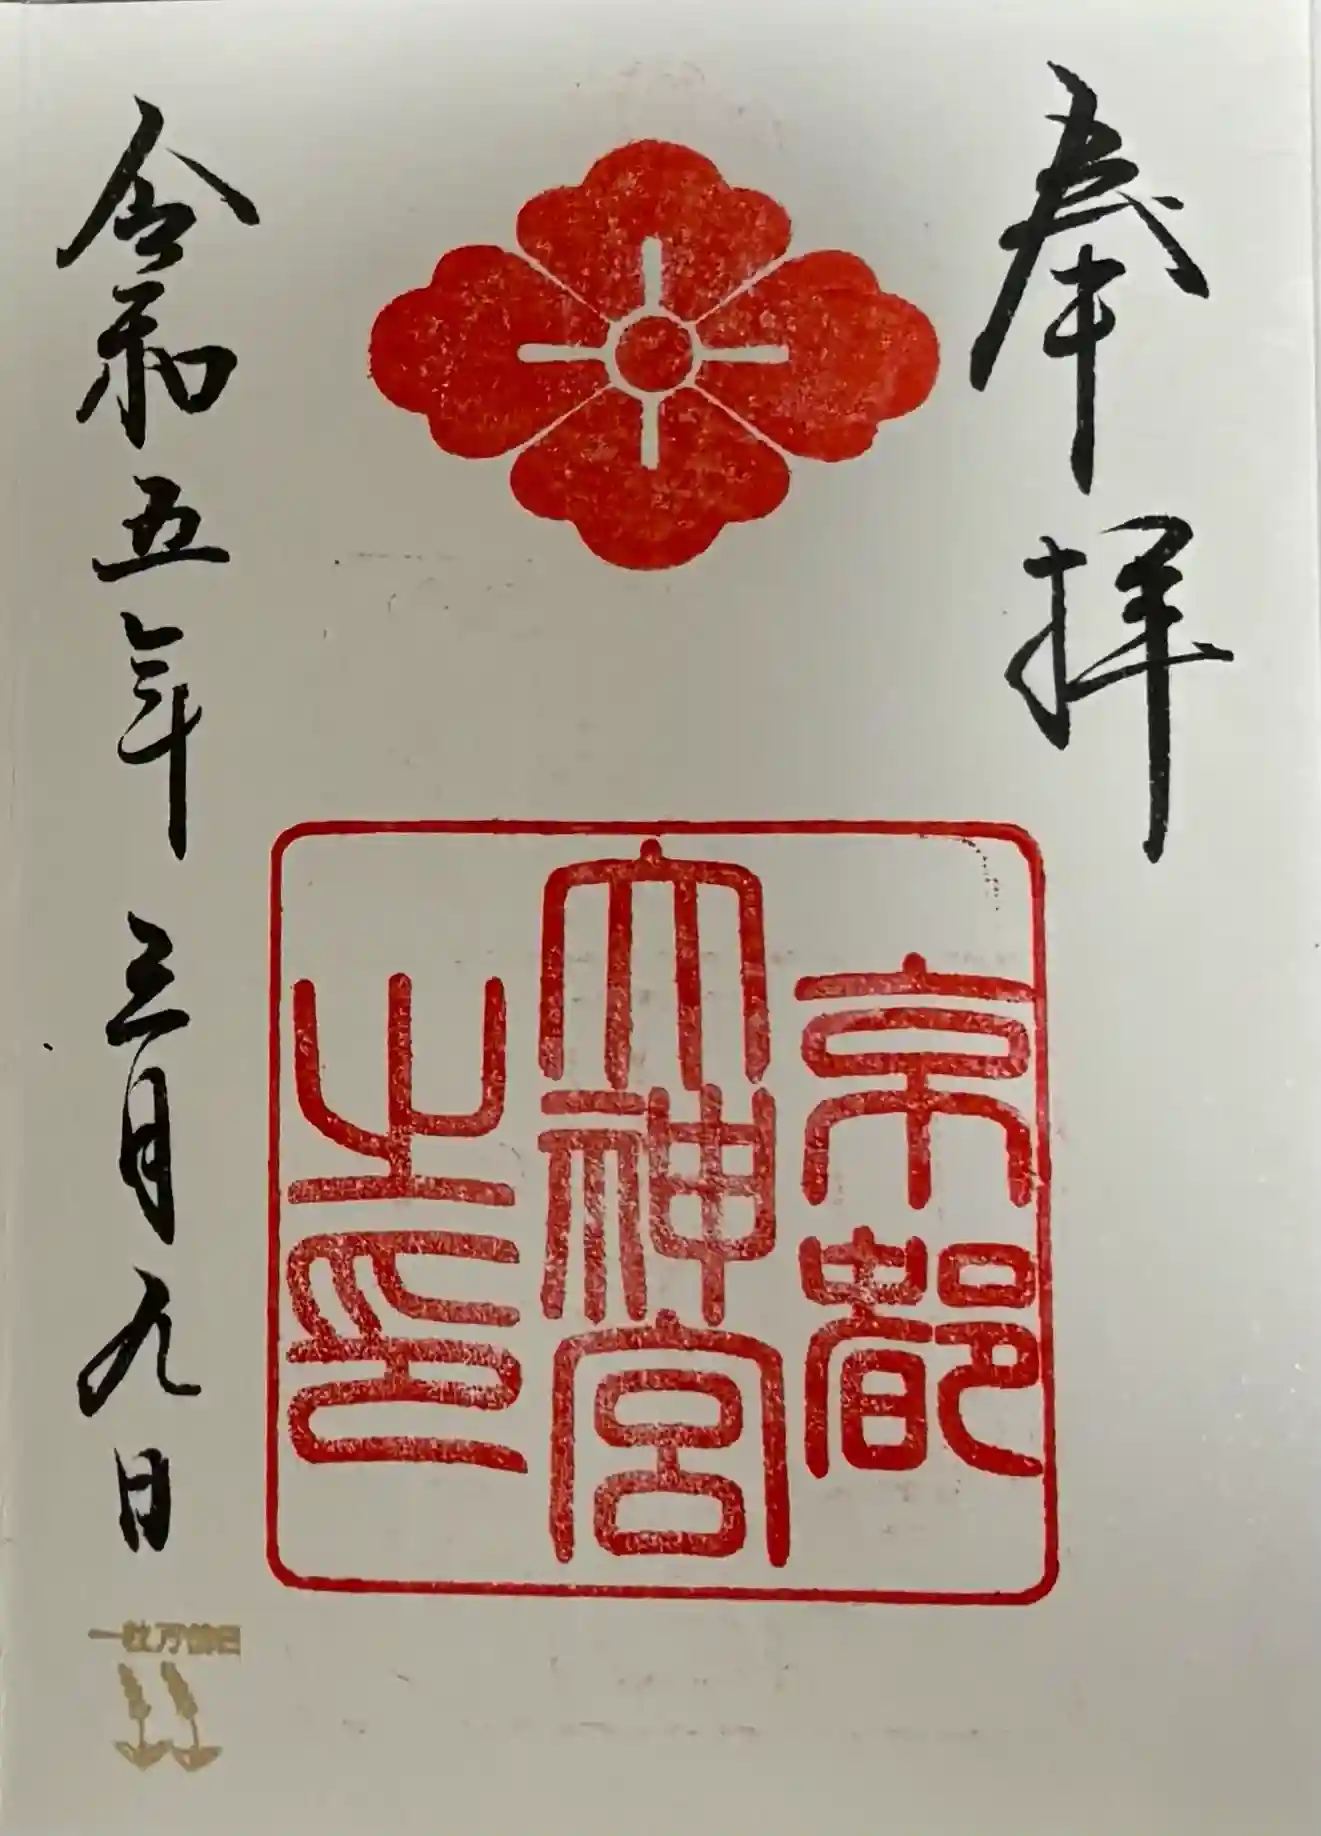 奉拝
京都
大神宮
之印
令和五年三月九日
一粒万倍日